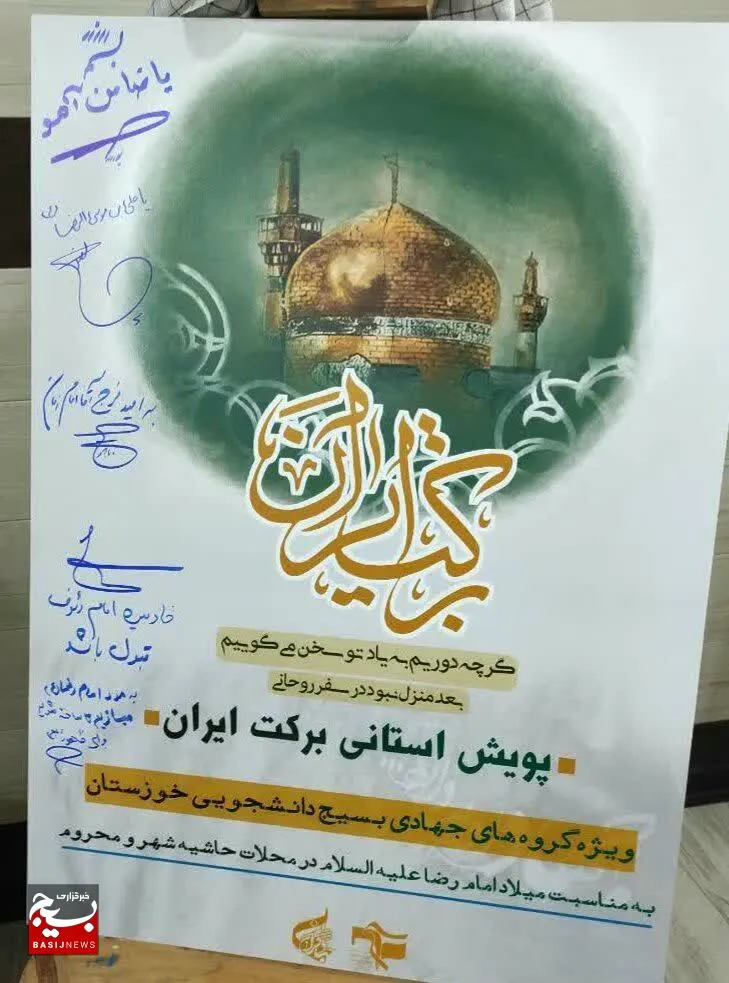 برکت ایران
گرچه دوریم به یاد تو سخن می گوییم
بعد منزل نبود در سفر روحانی
پویش استانی برکت ایران
ویژه گروه های جهادی بسیج دانشجویی خوزستان
به مناسبت میلاد امام رضا علیه السلام در محلات حاشیه شهر و محروم
یا ضامن آهو
یا علی ابن موسی الرضا
به امید فرج آقا امام زمان
امام رئوف
قبول باشد
به مدد امام رضا
خبرگزاری
بسیج
BASIJNEWS